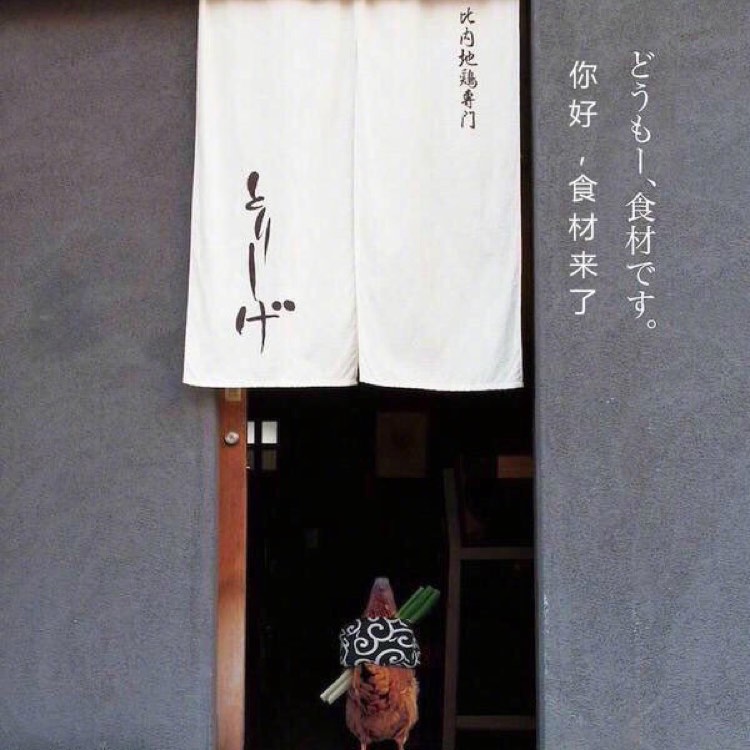 どうもー、食材です。
你好，食材来了
比内地鶏専门
とりしげ